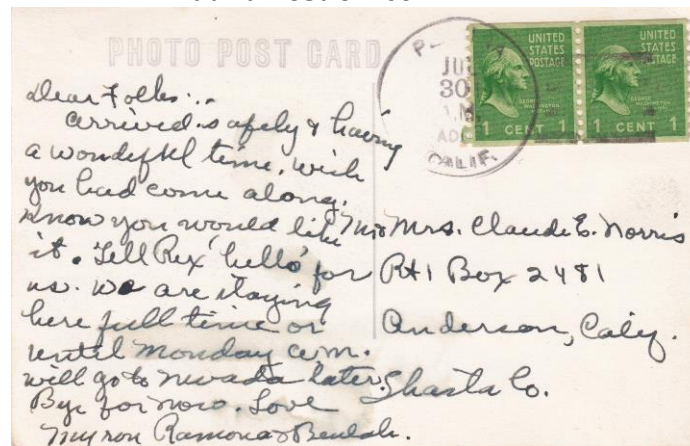 PHOTO POST CARD
JU
30
CALIF.
UNITED STATES POSTAGE
GEORGE WASHINGTON
1 CENT 1
UNITED STATES POSTAGE
GEORGE WASHINGTON
1 CENT 1
Dear Folks:..
arrived safely & having
a wonderful time. wish
you had come along.
Know you would like
it. Tell Rex 'hello' for
us. We are staying
here full time or
until Monday a.m.
will go to Nevada later.
Bye for now. Love
Myron Ramona & Beulah.
Mrs. Claude E. Norris
Rt 1 Box 2481
Anderson, Calif.
Shasta Co.